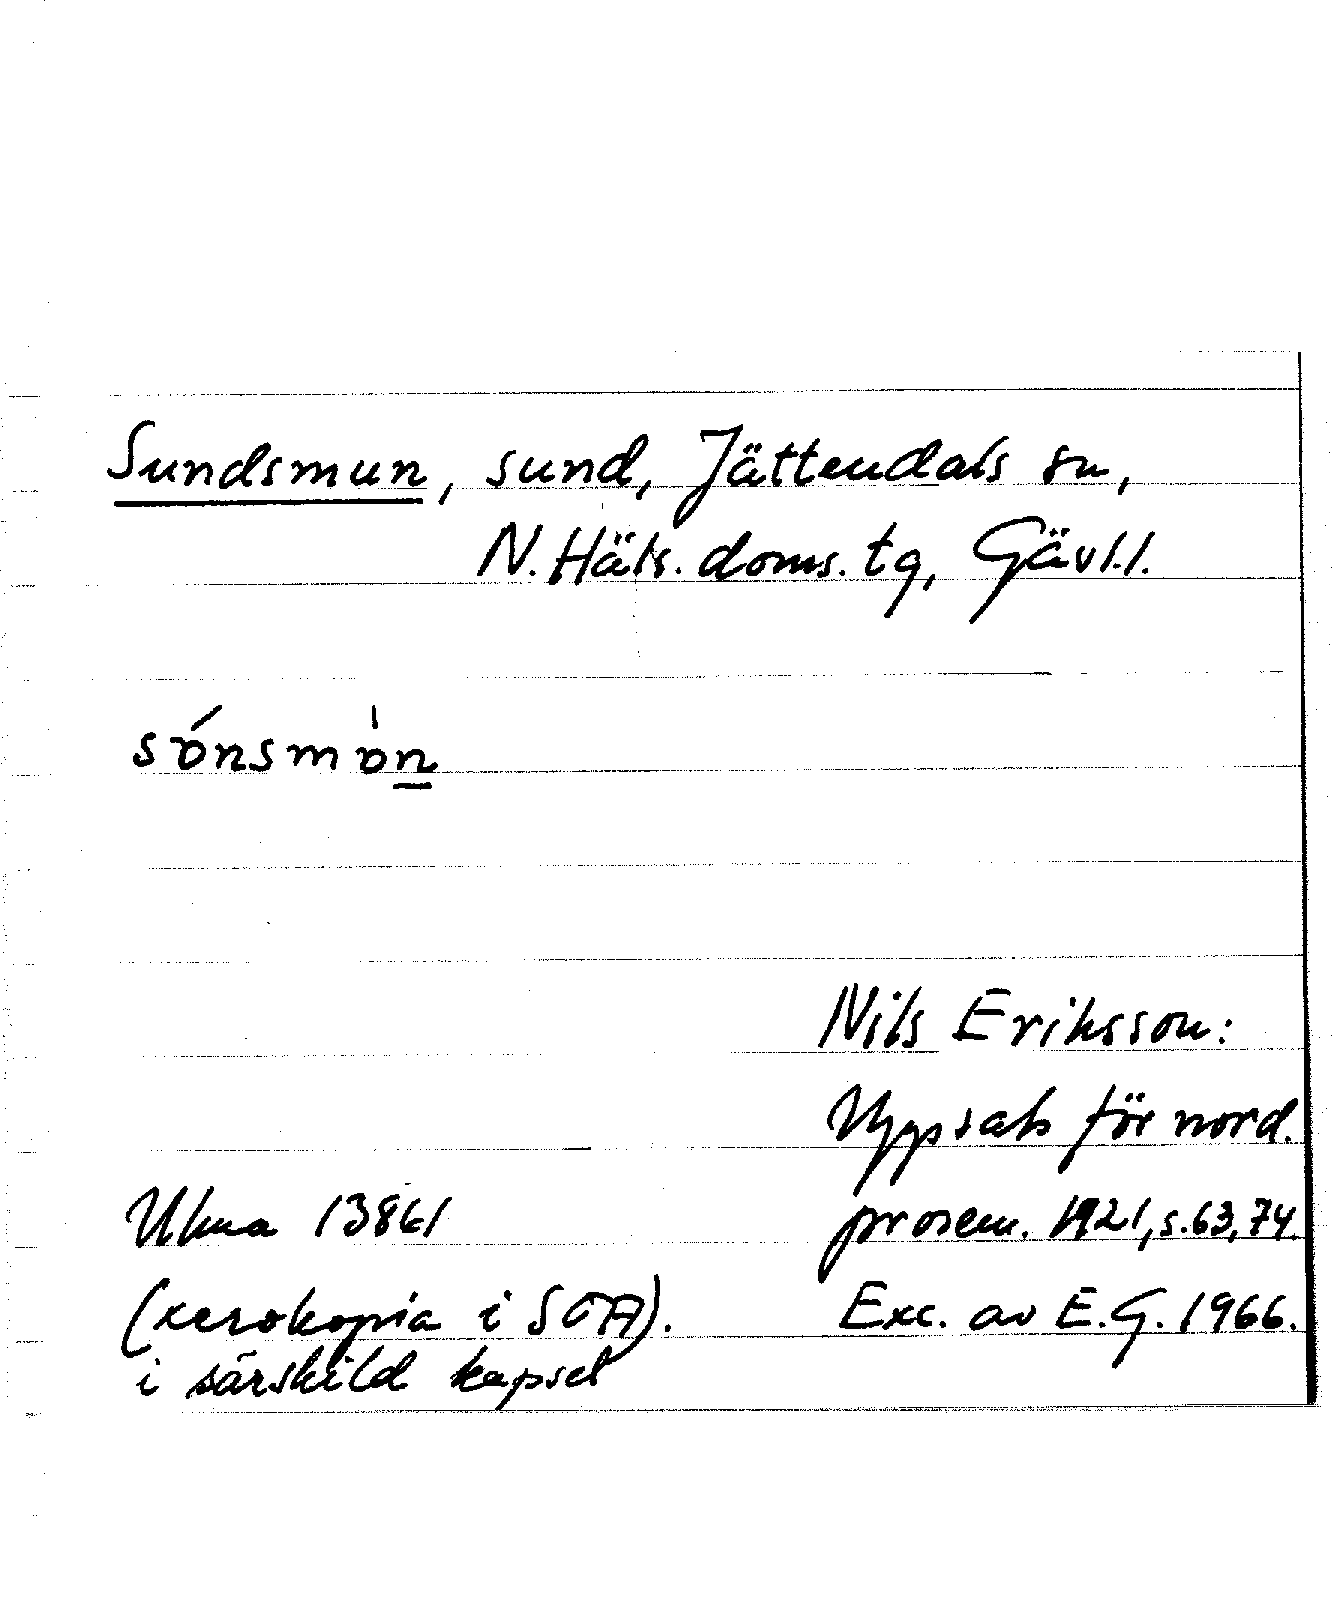 Sundsmun, sund, Jättendals sn,
N. Häls. doms. tg, Gävl.l.
sónsmòn
Nils Eriksson:
Uppsats för nord.
prosem. 1921, s. 63, 74.
Ulma 13861
(xerokopia i SOA).
Exc. av E.G. 1966.
i särskild kapsel